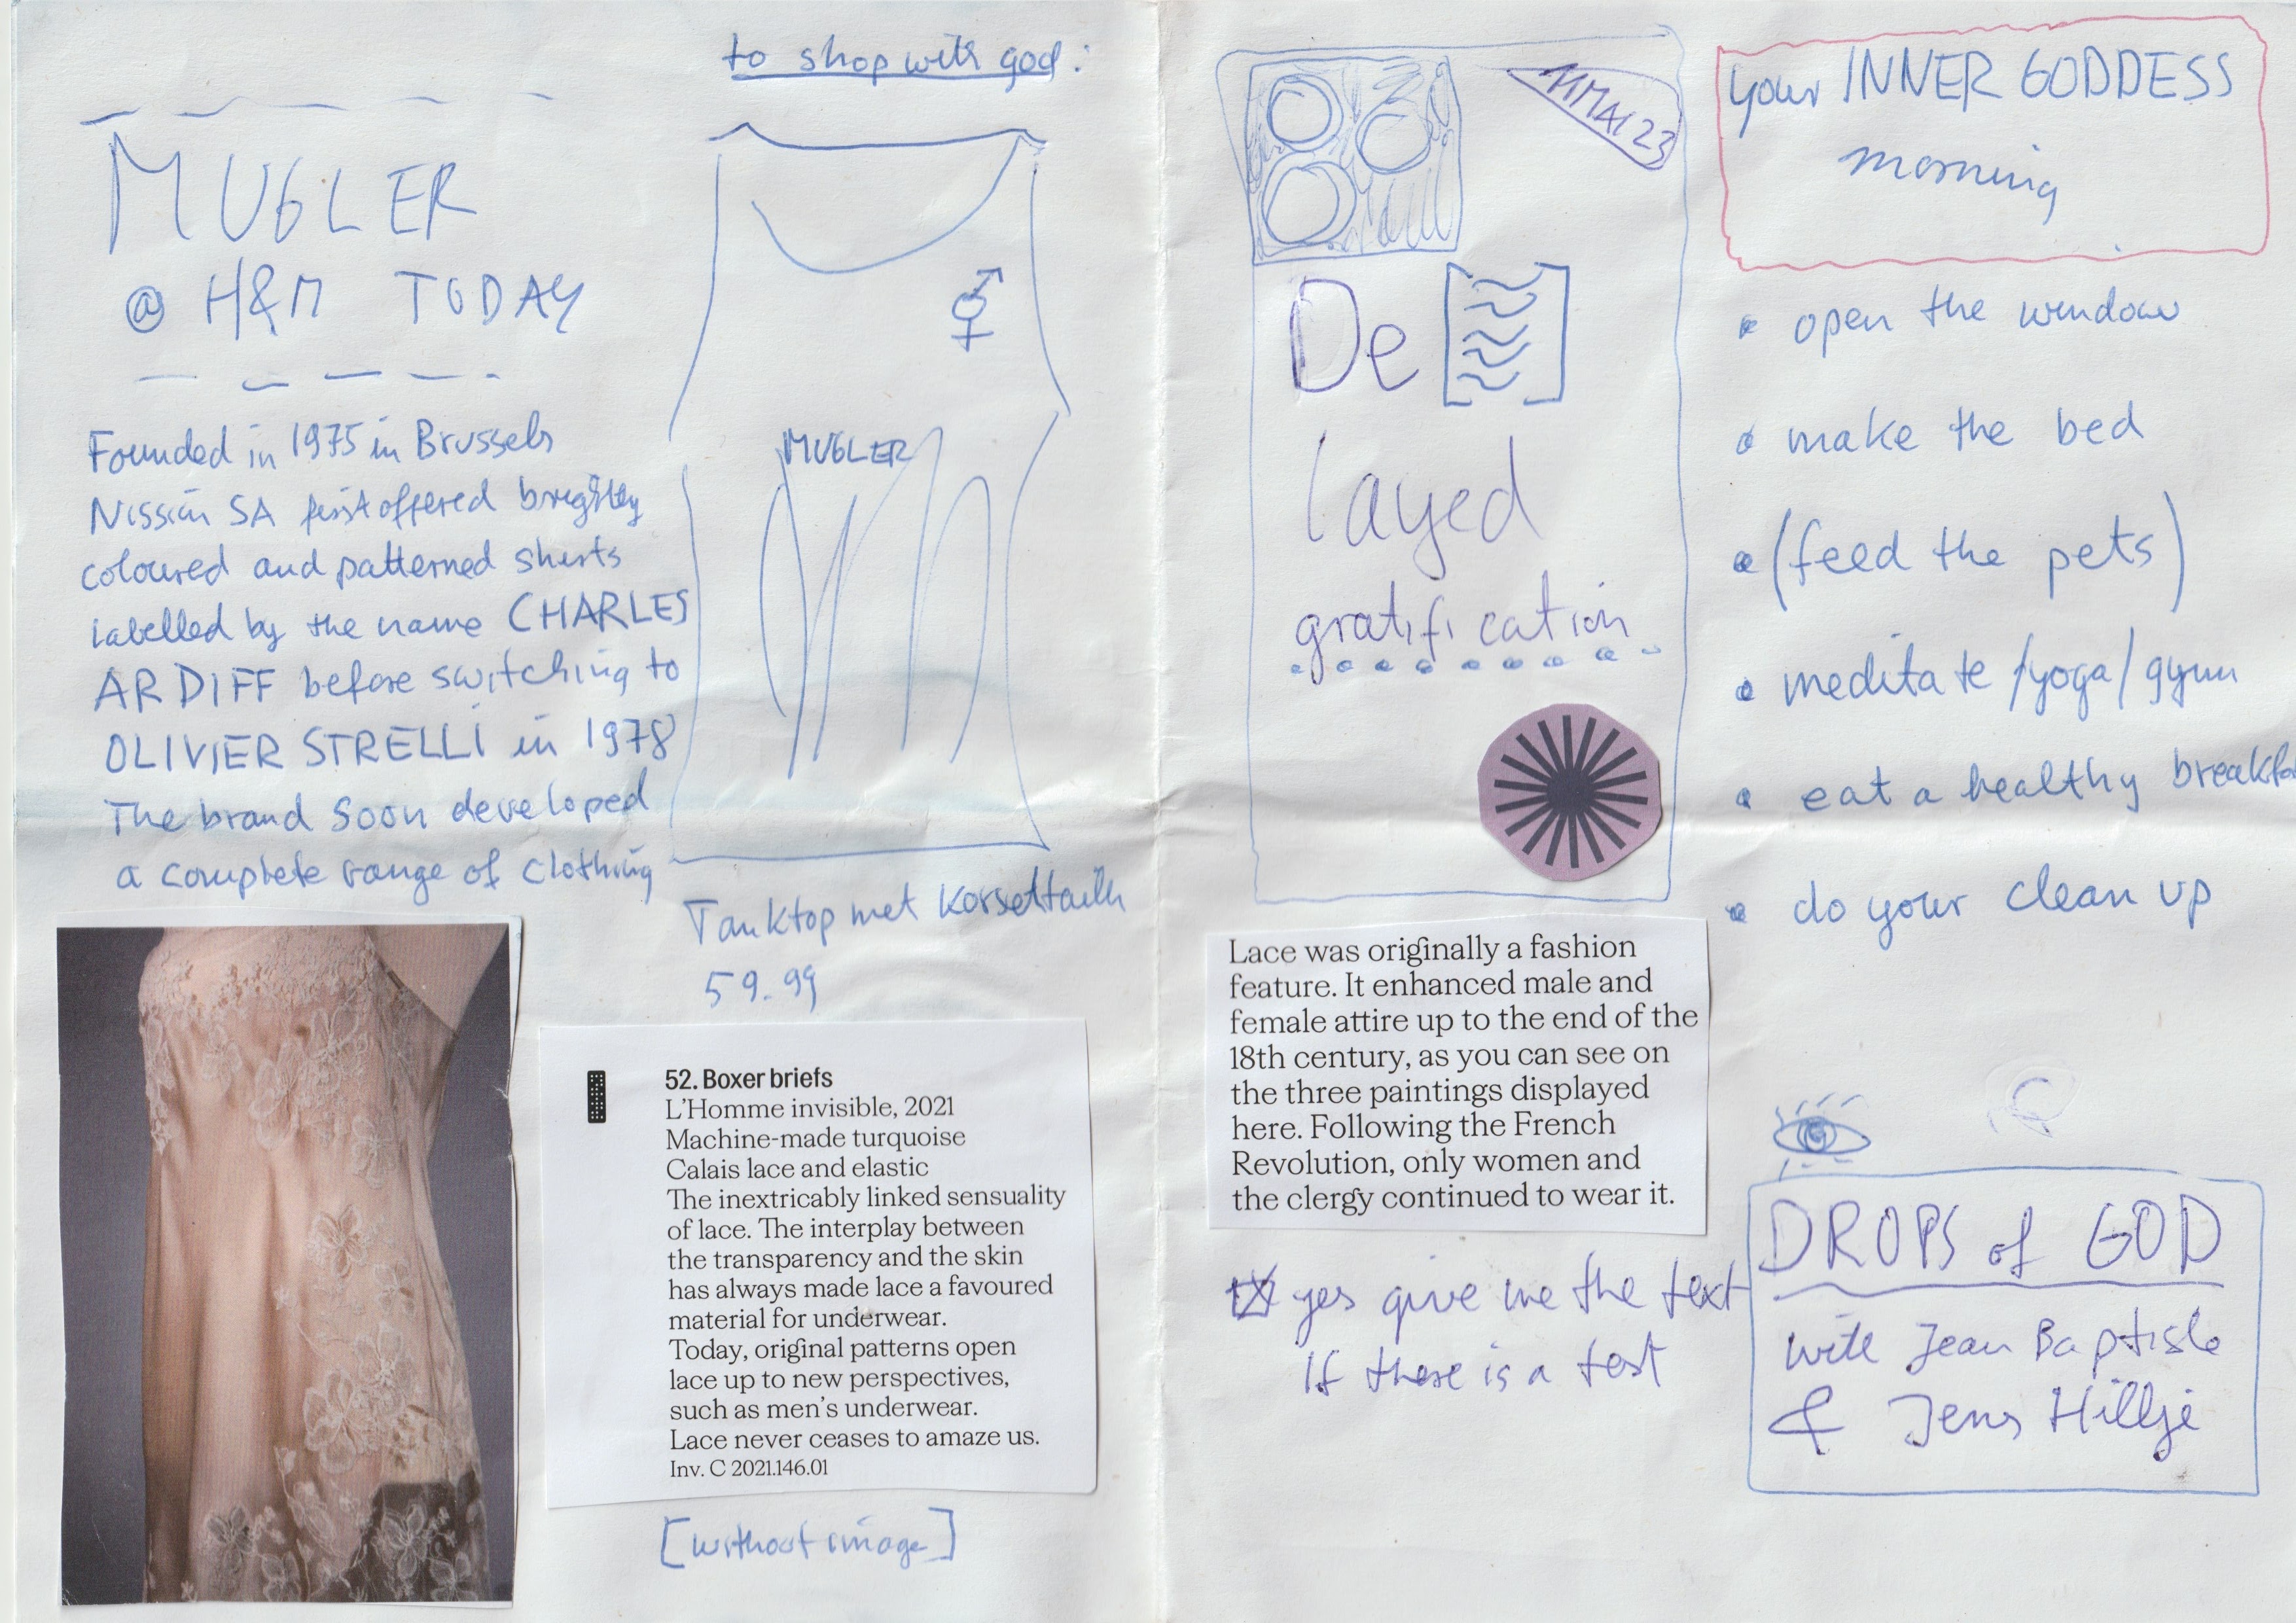 to shop with god:
MUGLER
@ H&M TODAY
Founded in 1975 in Brussels
Nissim SA first offered brightly
coloured and patterned shirts
labelled by the name CHARLES
ARDIFF before switching to
OLIVIER STRELLI in 1978
The brand soon developed
a complete range of clothing
MUGLER
Tanktop met korsettaille
59.99
52. Boxer briefs
L'Homme invisible, 2021
Machine-made turquoise
Calais lace and elastic
The inextricably linked sensuality
of lace. The interplay between
the transparency and the skin
has always made lace a favoured
material for underwear.
Today, original patterns open
lace up to new perspectives,
such as men's underwear.
Lace never ceases to amaze us.
Inv. C 2021.146.01
[without image]
11 MAI 23
De
layed
gratification
Lace was originally a fashion
feature. It enhanced male and
female attire up to the end of the
18th century, as you can see on
the three paintings displayed
here. Following the French
Revolution, only women and
the clergy continued to wear it.
yes give me the text
If there is a text
your INNER GODDESS
morning
• open the window
• make the bed
• (feed the pets)
• meditate / yoga / gym
• eat a healthy breakfa
• do your clean up
DROPS of GOD
with Jean Baptiste
& Jens Hillje